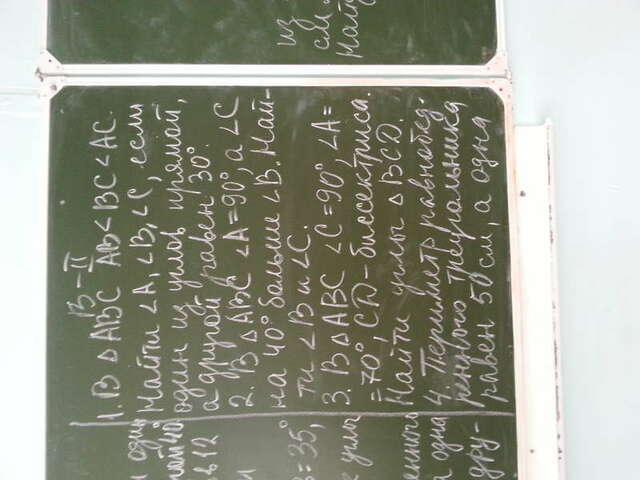 В-II
1. В △ABC AB<BC<AC.
Найти ∠A, ∠B, ∠C, если
один из углов прямой,
а другой равен 30°.
2. В △ABC ∠A=90°, а ∠C
на 40° больше ∠B. Най-
ти ∠B и ∠C.
3. В △ABC ∠C=90°, ∠A=
=70°, CD-биссектриса.
Найти углы △BCD.
4. Периметр равнобед-
ренного треугольника
равен 50 см, а одна
из
см
один
40°
в 12
=35°,
угла
одна
дру-